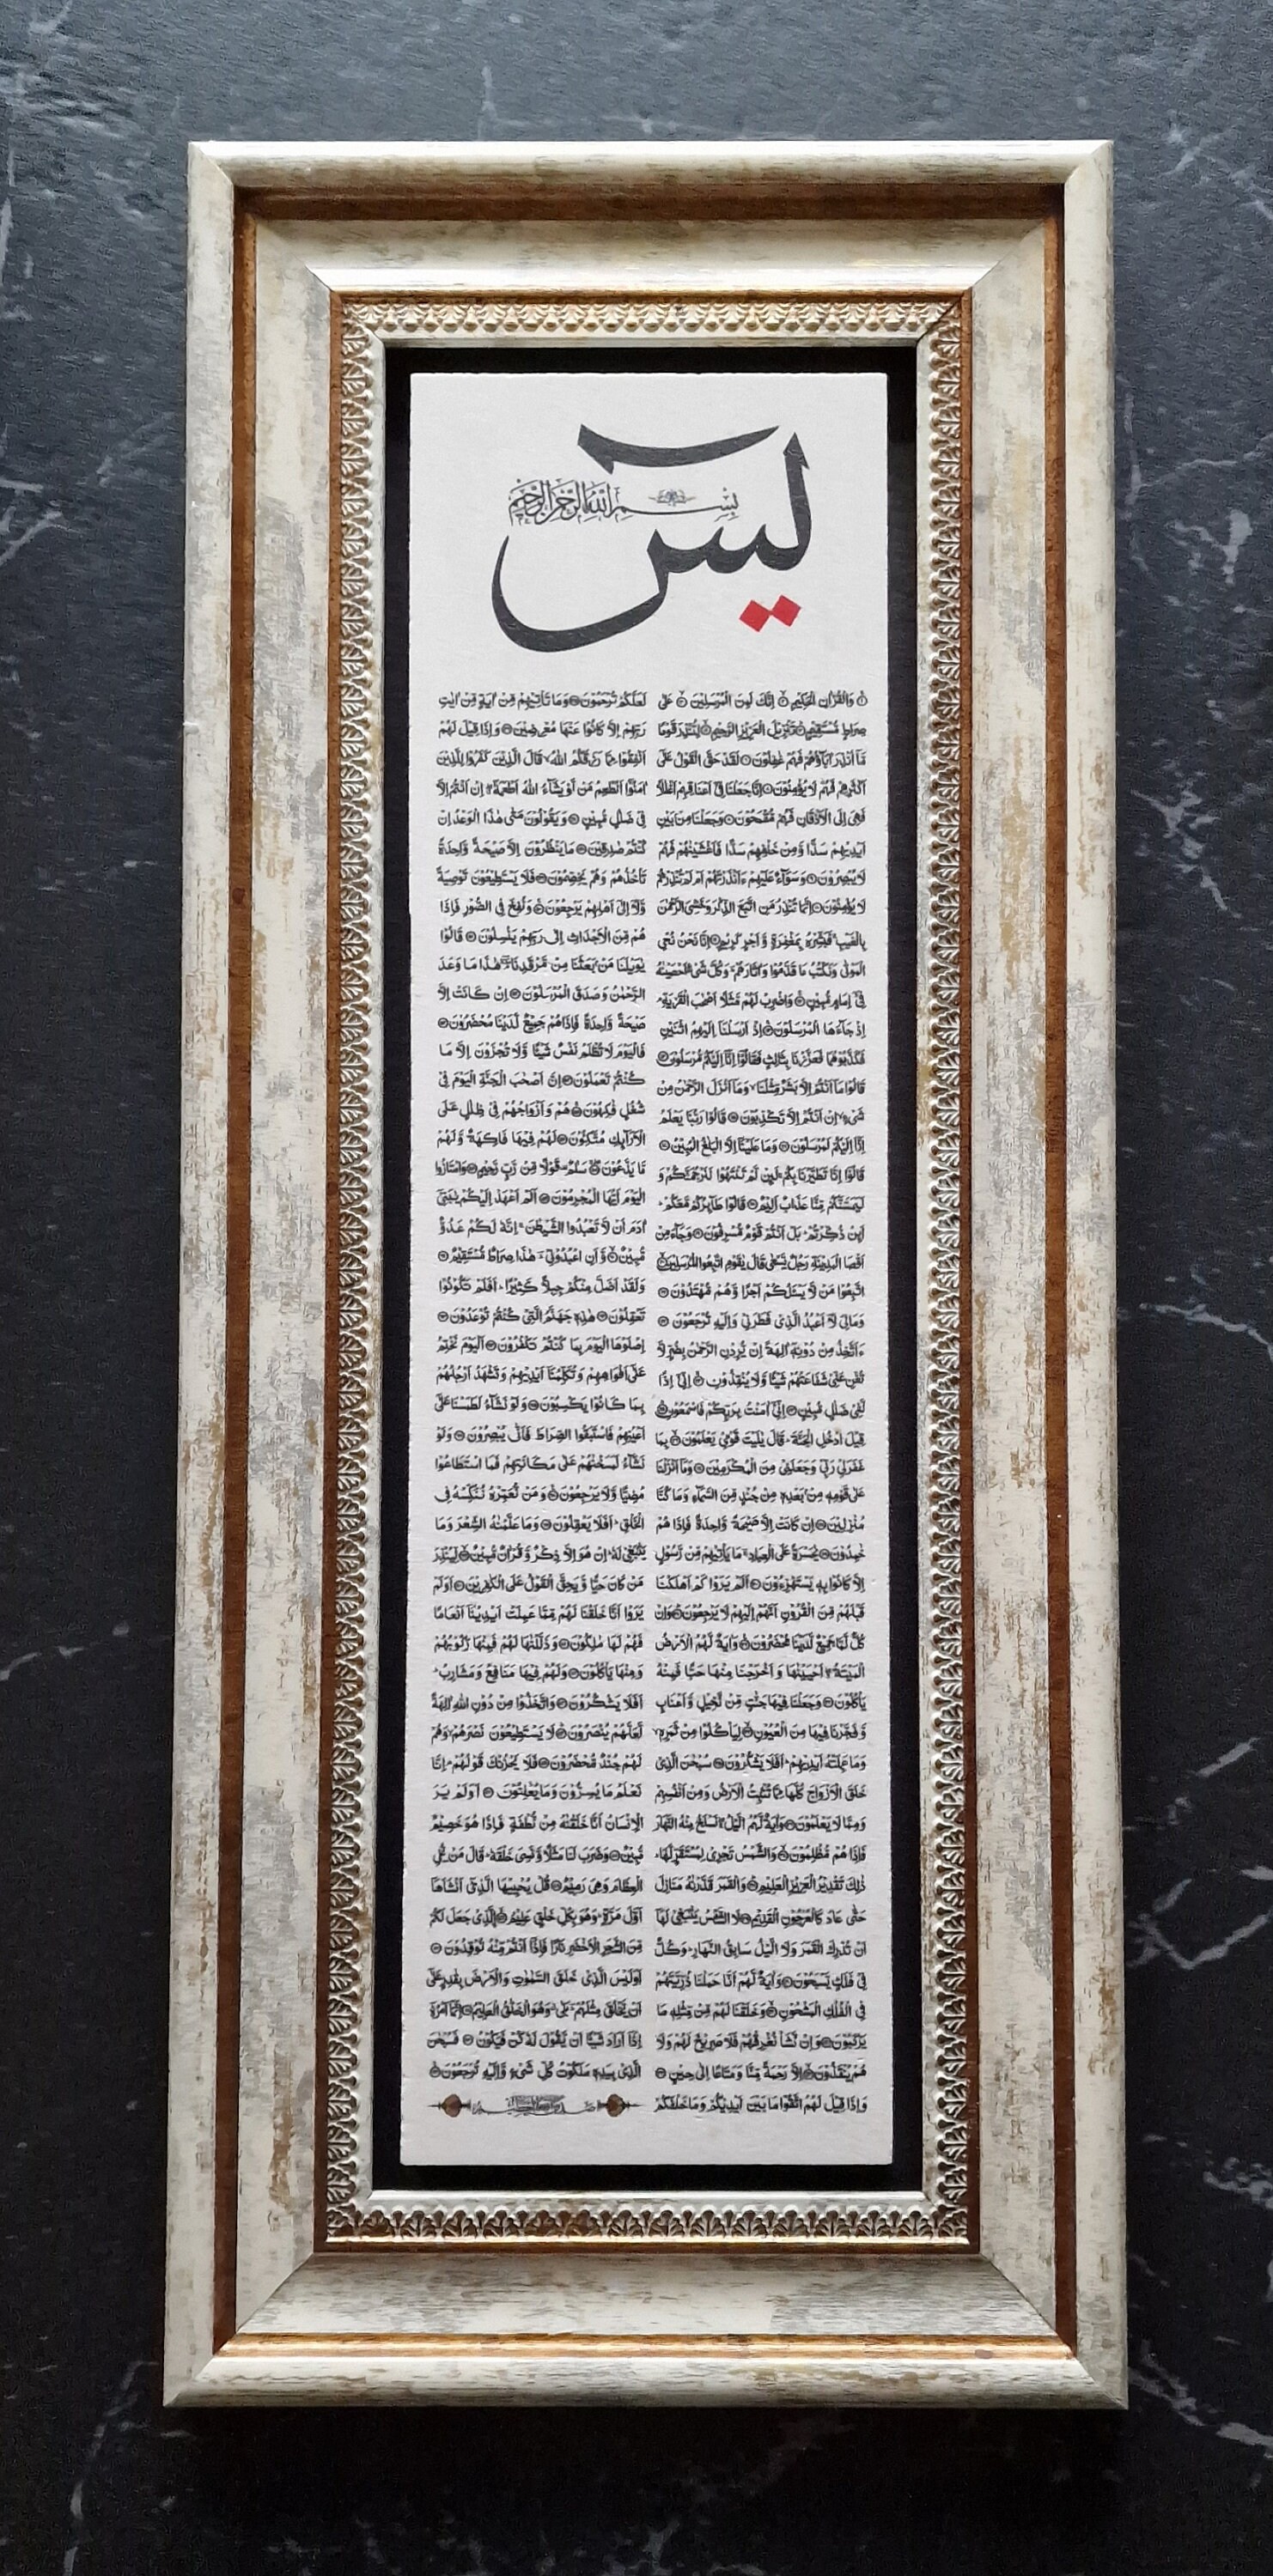 يٰسٓ
بسم الله الرحمن الرحيم
وَالْقُرْاٰنِ الْحَكِيمِ اِنَّكَ لَمِنَ الْمُرْسَلِينَ عَلٰى
صِرَاطٍ مُسْتَقِيمٍ تَنْزِيلَ الْعَزِيزِ الرَّحِيمِ لِتُنْذِرَ قَوْمًا
مَا اُنْذِرَ اٰبَاؤُهُمْ فَهُمْ غٰفِلُونَ لَقَدْ حَقَّ الْقَوْلُ عَلٰى
اَكْثَرِهِمْ فَهُمْ لَا يُؤْمِنُونَ اِنَّا جَعَلْنَا فِي اَعْنَاقِهِمْ اَغْلَالًا
فَهِيَ اِلَى الْاَذْقَانِ فَهُمْ مُقْمَحُونَ وَجَعَلْنَا مِنْ بَيْنِ
اَيْدِيهِمْ سَدًّا وَمِنْ خَلْفِهِمْ سَدًّا فَاَغْشَيْنٰهُمْ فَهُمْ
لَا يُبْصِرُونَ وَسَوَاءٌ عَلَيْهِمْ ءَاَنْذَرْتَهُمْ اَمْ لَمْ تُنْذِرْهُمْ
لَا يُؤْمِنُونَ اِنَّمَا تُنْذِرُ مَنِ اتَّبَعَ الذِّكْرَ وَخَشِيَ الرَّحْمٰنَ
بِالْغَيْبِ فَبَشِّرْهُ بِمَغْفِرَةٍ وَاَجْرٍ كَرِيمٍ اِنَّا نَحْنُ نُحْيِ
الْمَوْتٰى وَنَكْتُبُ مَا قَدَّمُوا وَاٰثَارَهُمْ وَكُلَّ شَيْءٍ اَحْصَيْنٰهُ
فِي اِمَامٍ مُبِينٍ وَاضْرِبْ لَهُمْ مَثَلًا اَصْحٰبَ الْقَرْيَةِ
اِذْ جَاءَهَا الْمُرْسَلُونَ اِذْ اَرْسَلْنَا اِلَيْهِمُ اثْنَيْنِ
فَكَذَّبُوهُمَا فَعَزَّزْنَا بِثَالِثٍ فَقَالُوا اِنَّا اِلَيْكُمْ مُرْسَلُونَ
قَالُوا مَا اَنْتُمْ اِلَّا بَشَرٌ مِثْلُنَا وَمَا اَنْزَلَ الرَّحْمٰنُ مِنْ
شَيْءٍ اِنْ اَنْتُمْ اِلَّا تَكْذِبُونَ قَالُوا رَبُّنَا يَعْلَمُ
اِنَّا اِلَيْكُمْ لَمُرْسَلُونَ وَمَا عَلَيْنَا اِلَّا الْبَلٰغُ الْمُبِينُ
قَالُوا اِنَّا تَطَيَّرْنَا بِكُمْ لَئِنْ لَمْ تَنْتَهُوا لَنَرْجُمَنَّكُمْ وَ
لَيَمَسَّنَّكُمْ مِنَّا عَذَابٌ اَلِيمٌ قَالُوا طَائِرُكُمْ مَعَكُمْ
اَئِنْ ذُكِّرْتُمْ بَلْ اَنْتُمْ قَوْمٌ مُسْرِفُونَ وَجَاءَ مِنْ
اَقْصَا الْمَدِينَةِ رَجُلٌ يَسْعٰى قَالَ يٰقَوْمِ اتَّبِعُوا الْمُرْسَلِينَ
اتَّبِعُوا مَنْ لَا يَسْئَلُكُمْ اَجْرًا وَهُمْ مُهْتَدُونَ
وَمَالِيَ لَا اَعْبُدُ الَّذِي فَطَرَنِي وَاِلَيْهِ تُرْجَعُونَ
ءَاَتَّخِذُ مِنْ دُونِهِ اٰلِهَةً اِنْ يُرِدْنِ الرَّحْمٰنُ بِضُرٍّ لَا
تُغْنِ عَنِّي شَفَاعَتُهُمْ شَيْئًا وَلَا يُنْقِذُونِ اِنِّي اِذًا
لَفِي ضَلٰلٍ مُبِينٍ اِنِّي اٰمَنْتُ بِرَبِّكُمْ فَاسْمَعُونِ
قِيلَ ادْخُلِ الْجَنَّةَ قَالَ يٰلَيْتَ قَوْمِي يَعْلَمُونَ بِمَا
غَفَرَ لِي رَبِّي وَجَعَلَنِي مِنَ الْمُكْرَمِينَ وَمَا اَنْزَلْنَا
عَلٰى قَوْمِهِ مِنْ بَعْدِهِ مِنْ جُنْدٍ مِنَ السَّمَاءِ وَمَا كُنَّا
مُنْزِلِينَ اِنْ كَانَتْ اِلَّا صَيْحَةً وَاحِدَةً فَاِذَا هُمْ
خٰمِدُونَ يٰحَسْرَةً عَلَى الْعِبَادِ مَا يَأْتِيهِمْ مِنْ رَسُولٍ
اِلَّا كَانُوا بِهِ يَسْتَهْزِءُونَ اَلَمْ يَرَوْا كَمْ اَهْلَكْنَا
قَبْلَهُمْ مِنَ الْقُرُونِ اَنَّهُمْ اِلَيْهِمْ لَا يَرْجِعُونَ وَاِنْ
كُلٌّ لَمَّا جَمِيعٌ لَدَيْنَا مُحْضَرُونَ وَاٰيَةٌ لَهُمُ الْاَرْضُ
الْمَيْتَةُ اَحْيَيْنٰهَا وَاَخْرَجْنَا مِنْهَا حَبًّا فَمِنْهُ
يَأْكُلُونَ وَجَعَلْنَا فِيهَا جَنّٰتٍ مِنْ نَخِيلٍ وَاَعْنَابٍ
وَفَجَّرْنَا فِيهَا مِنَ الْعُيُونِ لِيَأْكُلُوا مِنْ ثَمَرِهِ
وَمَا عَمِلَتْهُ اَيْدِيهِمْ اَفَلَا يَشْكُرُونَ سُبْحٰنَ الَّذِي
خَلَقَ الْاَزْوَاجَ كُلَّهَا مِمَّا تُنْبِتُ الْاَرْضُ وَمِنْ اَنْفُسِهِمْ
وَمِمَّا لَا يَعْلَمُونَ وَاٰيَةٌ لَهُمُ الَّيْلُ نَسْلَخُ مِنْهُ النَّهَارَ
فَاِذَا هُمْ مُظْلِمُونَ وَالشَّمْسُ تَجْرِي لِمُسْتَقَرٍّ لَهَا
ذٰلِكَ تَقْدِيرُ الْعَزِيزِ الْعَلِيمِ وَالْقَمَرَ قَدَّرْنٰهُ مَنَازِلَ
حَتّٰى عَادَ كَالْعُرْجُونِ الْقَدِيمِ لَا الشَّمْسُ يَنْبَغِي لَهَا
اَنْ تُدْرِكَ الْقَمَرَ وَلَا الَّيْلُ سَابِقُ النَّهَارِ وَكُلٌّ
فِي فَلَكٍ يَسْبَحُونَ وَاٰيَةٌ لَهُمْ اَنَّا حَمَلْنَا ذُرِّيَّتَهُمْ
فِي الْفُلْكِ الْمَشْحُونِ وَخَلَقْنَا لَهُمْ مِنْ مِثْلِهِ مَا
يَرْكَبُونَ وَاِنْ نَشَأْ نُغْرِقْهُمْ فَلَا صَرِيخَ لَهُمْ وَلَا
هُمْ يُنْقَذُونَ اِلَّا رَحْمَةً مِنَّا وَمَتَاعًا اِلٰى حِينٍ
وَاِذَا قِيلَ لَهُمُ اتَّقُوا مَا بَيْنَ اَيْدِيكُمْ وَمَا خَلْفَكُمْ
لَعَلَّكُمْ تُرْحَمُونَ وَمَا تَأْتِيهِمْ مِنْ اٰيَةٍ مِنْ اٰيٰتِ
رَبِّهِمْ اِلَّا كَانُوا عَنْهَا مُعْرِضِينَ وَاِذَا قِيلَ لَهُمْ
اَنْفِقُوا مِمَّا رَزَقَكُمُ اللهُ قَالَ الَّذِينَ كَفَرُوا لِلَّذِينَ
اٰمَنُوا اَنُطْعِمُ مَنْ لَوْ يَشَاءُ اللهُ اَطْعَمَهُ اِنْ اَنْتُمْ اِلَّا
فِي ضَلٰلٍ مُبِينٍ وَيَقُولُونَ مَتٰى هٰذَا الْوَعْدُ اِنْ
كُنْتُمْ صٰدِقِينَ مَا يَنْظُرُونَ اِلَّا صَيْحَةً وَاحِدَةً
تَأْخُذُهُمْ وَهُمْ يَخِصِّمُونَ فَلَا يَسْتَطِيعُونَ تَوْصِيَةً
وَلَا اِلٰى اَهْلِهِمْ يَرْجِعُونَ وَنُفِخَ فِي الصُّورِ فَاِذَا
هُمْ مِنَ الْاَجْدَاثِ اِلٰى رَبِّهِمْ يَنْسِلُونَ قَالُوا
يٰوَيْلَنَا مَنْ بَعَثَنَا مِنْ مَرْقَدِنَا هٰذَا مَا وَعَدَ
الرَّحْمٰنُ وَصَدَقَ الْمُرْسَلُونَ اِنْ كَانَتْ اِلَّا
صَيْحَةً وَاحِدَةً فَاِذَا هُمْ جَمِيعٌ لَدَيْنَا مُحْضَرُونَ
فَالْيَوْمَ لَا تُظْلَمُ نَفْسٌ شَيْئًا وَلَا تُجْزَوْنَ اِلَّا مَا
كُنْتُمْ تَعْمَلُونَ اِنَّ اَصْحٰبَ الْجَنَّةِ الْيَوْمَ فِي
شُغُلٍ فٰكِهُونَ هُمْ وَاَزْوَاجُهُمْ فِي ظِلٰلٍ عَلَى
الْاَرَائِكِ مُتَّكِؤُنَ لَهُمْ فِيهَا فَاكِهَةٌ وَلَهُمْ
مَا يَدَّعُونَ سَلٰمٌ قَوْلًا مِنْ رَبٍّ رَحِيمٍ وَامْتَازُوا
الْيَوْمَ اَيُّهَا الْمُجْرِمُونَ اَلَمْ اَعْهَدْ اِلَيْكُمْ يٰبَنِي
اٰدَمَ اَنْ لَا تَعْبُدُوا الشَّيْطٰنَ اِنَّهُ لَكُمْ عَدُوٌّ
مُبِينٌ وَاَنِ اعْبُدُونِي هٰذَا صِرَاطٌ مُسْتَقِيمٌ
وَلَقَدْ اَضَلَّ مِنْكُمْ جِبِلًّا كَثِيرًا اَفَلَمْ تَكُونُوا
تَعْقِلُونَ هٰذِهِ جَهَنَّمُ الَّتِي كُنْتُمْ تُوعَدُونَ
اِصْلَوْهَا الْيَوْمَ بِمَا كُنْتُمْ تَكْفُرُونَ اَلْيَوْمَ نَخْتِمُ
عَلٰى اَفْوَاهِهِمْ وَتُكَلِّمُنَا اَيْدِيهِمْ وَتَشْهَدُ اَرْجُلُهُمْ
بِمَا كَانُوا يَكْسِبُونَ وَلَوْ نَشَاءُ لَطَمَسْنَا عَلٰى
اَعْيُنِهِمْ فَاسْتَبَقُوا الصِّرَاطَ فَاَنّٰى يُبْصِرُونَ وَلَوْ
نَشَاءُ لَمَسَخْنٰهُمْ عَلٰى مَكَانَتِهِمْ فَمَا اسْتَطَاعُوا
مُضِيًّا وَلَا يَرْجِعُونَ وَمَنْ نُعَمِّرْهُ نُنَكِّسْهُ فِي
الْخَلْقِ اَفَلَا يَعْقِلُونَ وَمَا عَلَّمْنٰهُ الشِّعْرَ وَمَا
يَنْبَغِي لَهُ اِنْ هُوَ اِلَّا ذِكْرٌ وَقُرْاٰنٌ مُبِينٌ لِيُنْذِرَ
مَنْ كَانَ حَيًّا وَيَحِقَّ الْقَوْلُ عَلَى الْكٰفِرِينَ اَوَلَمْ
يَرَوْا اَنَّا خَلَقْنَا لَهُمْ مِمَّا عَمِلَتْ اَيْدِينَا اَنْعَامًا
فَهُمْ لَهَا مٰلِكُونَ وَذَلَّلْنٰهَا لَهُمْ فَمِنْهَا رَكُوبُهُمْ
وَمِنْهَا يَأْكُلُونَ وَلَهُمْ فِيهَا مَنَافِعُ وَمَشَارِبُ
اَفَلَا يَشْكُرُونَ وَاتَّخَذُوا مِنْ دُونِ اللهِ اٰلِهَةً
لَعَلَّهُمْ يُنْصَرُونَ لَا يَسْتَطِيعُونَ نَصْرَهُمْ وَهُمْ
لَهُمْ جُنْدٌ مُحْضَرُونَ فَلَا يَحْزُنْكَ قَوْلُهُمْ اِنَّا
نَعْلَمُ مَا يُسِرُّونَ وَمَا يُعْلِنُونَ اَوَلَمْ يَرَ
الْاِنْسَانُ اَنَّا خَلَقْنٰهُ مِنْ نُطْفَةٍ فَاِذَا هُوَ خَصِيمٌ
مُبِينٌ وَضَرَبَ لَنَا مَثَلًا وَنَسِيَ خَلْقَهُ قَالَ مَنْ يُحْيِ
الْعِظَامَ وَهِيَ رَمِيمٌ قُلْ يُحْيِيهَا الَّذِي اَنْشَاَهَا
اَوَّلَ مَرَّةٍ وَهُوَ بِكُلِّ خَلْقٍ عَلِيمٌ اَلَّذِي جَعَلَ لَكُمْ
مِنَ الشَّجَرِ الْاَخْضَرِ نَارًا فَاِذَا اَنْتُمْ مِنْهُ تُوقِدُونَ
اَوَلَيْسَ الَّذِي خَلَقَ السَّمٰوَاتِ وَالْاَرْضَ بِقٰدِرٍ عَلٰى
اَنْ يَخْلُقَ مِثْلَهُمْ بَلٰى وَهُوَ الْخَلّٰقُ الْعَلِيمُ اِنَّمَا اَمْرُهُ
اِذَا اَرَادَ شَيْئًا اَنْ يَقُولَ لَهُ كُنْ فَيَكُونُ فَسُبْحٰنَ
الَّذِي بِيَدِهِ مَلَكُوتُ كُلِّ شَيْءٍ وَاِلَيْهِ تُرْجَعُونَ